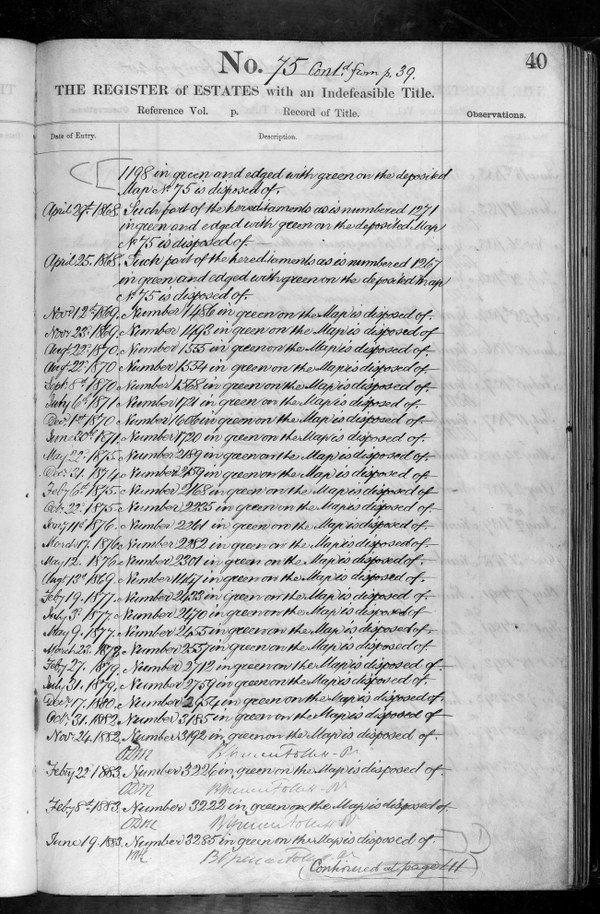 No. 75 Cont.d from p. 39.
40
THE REGISTER of ESTATES with an Indefeasible Title.
Reference Vol. p. Record of Title.
Observations.
Date of Entry.
Description.
1198 in green and edged with green on the deposited
Map No 75 is disposed of.
April 29th. 1868. Such part of the hereditaments as is numbered 1271
in green and edged with green on the deposited Map
No 75 is disposed of.
April 25. 1868. Such part of the hereditaments as is numbered 1267
in green and edged with green on the deposited Map
No 75 is disposed of.
Novr 12th 1869. Number 1486 in green on the Map is disposed of.
Novr 23. 1869. Number 1493 in green on the Map is disposed of.
Augt. 22. 1870. Number 1555 in green on the Map is disposed of.
Augt. 22. 1870. Number 1554 in green on the Map is disposed of.
Septr 8th 1870. Number 1568 in green on the Map is disposed of.
July 6th 1871. Number 1731 in green on the Map is disposed of.
Decr. 1st 1870. Number 1606 in green on the Map is disposed of.
June 20th 1871. Number 1720 in green on the Map is disposed of.
May 22. 1875. Number 2189 in green on the Map is disposed of.
Decr. 31. 1874. Number 2159 in green on the Map is disposed of.
Feby 6th 1875. Number 2168 in green on the Map is disposed of.
Octr. 22. 1875. Number 2235 in green on the Map is disposed of.
Jany 11th 1876. Number 2261 in green on the Map is disposed of.
March 17. 1876. Number 2282 in green on the Map is disposed of.
May 12. 1876. Number 2301 in green on the Map is disposed of.
Augt 13th 1869. Number 1447 in green on the Map is disposed of.
Feby 19. 1877. Number 2433 in green on the Map is disposed of.
July 3d. 1877. Number 2470 in green on the Map is disposed of.
May 9. 1877. Number 2455 in green on the Map is disposed of.
March 23. 1878. Number 2557 in green on the Map is disposed of.
Feby 27. 1879. Number 2712 in green on the Map is disposed of.
July 31. 1879. Number 2759 in green on the Map is disposed of.
Decr 17. 1880. Number 2954 in green on the Map is disposed of.
Octr. 31. 1882. Number 3185 in green on the Map is disposed of
Novr. 24. 1882. Number 3192 in green on the Map is disposed of
Feby 22 1883. Number 3226 in green on the Map is disposed of.
Feby 8th. 1883. Number 3222 in green on the Map is disposed of.
June 19. 1883. Number 3285 in green on the Map is disposed of.
(Continued at page 41)